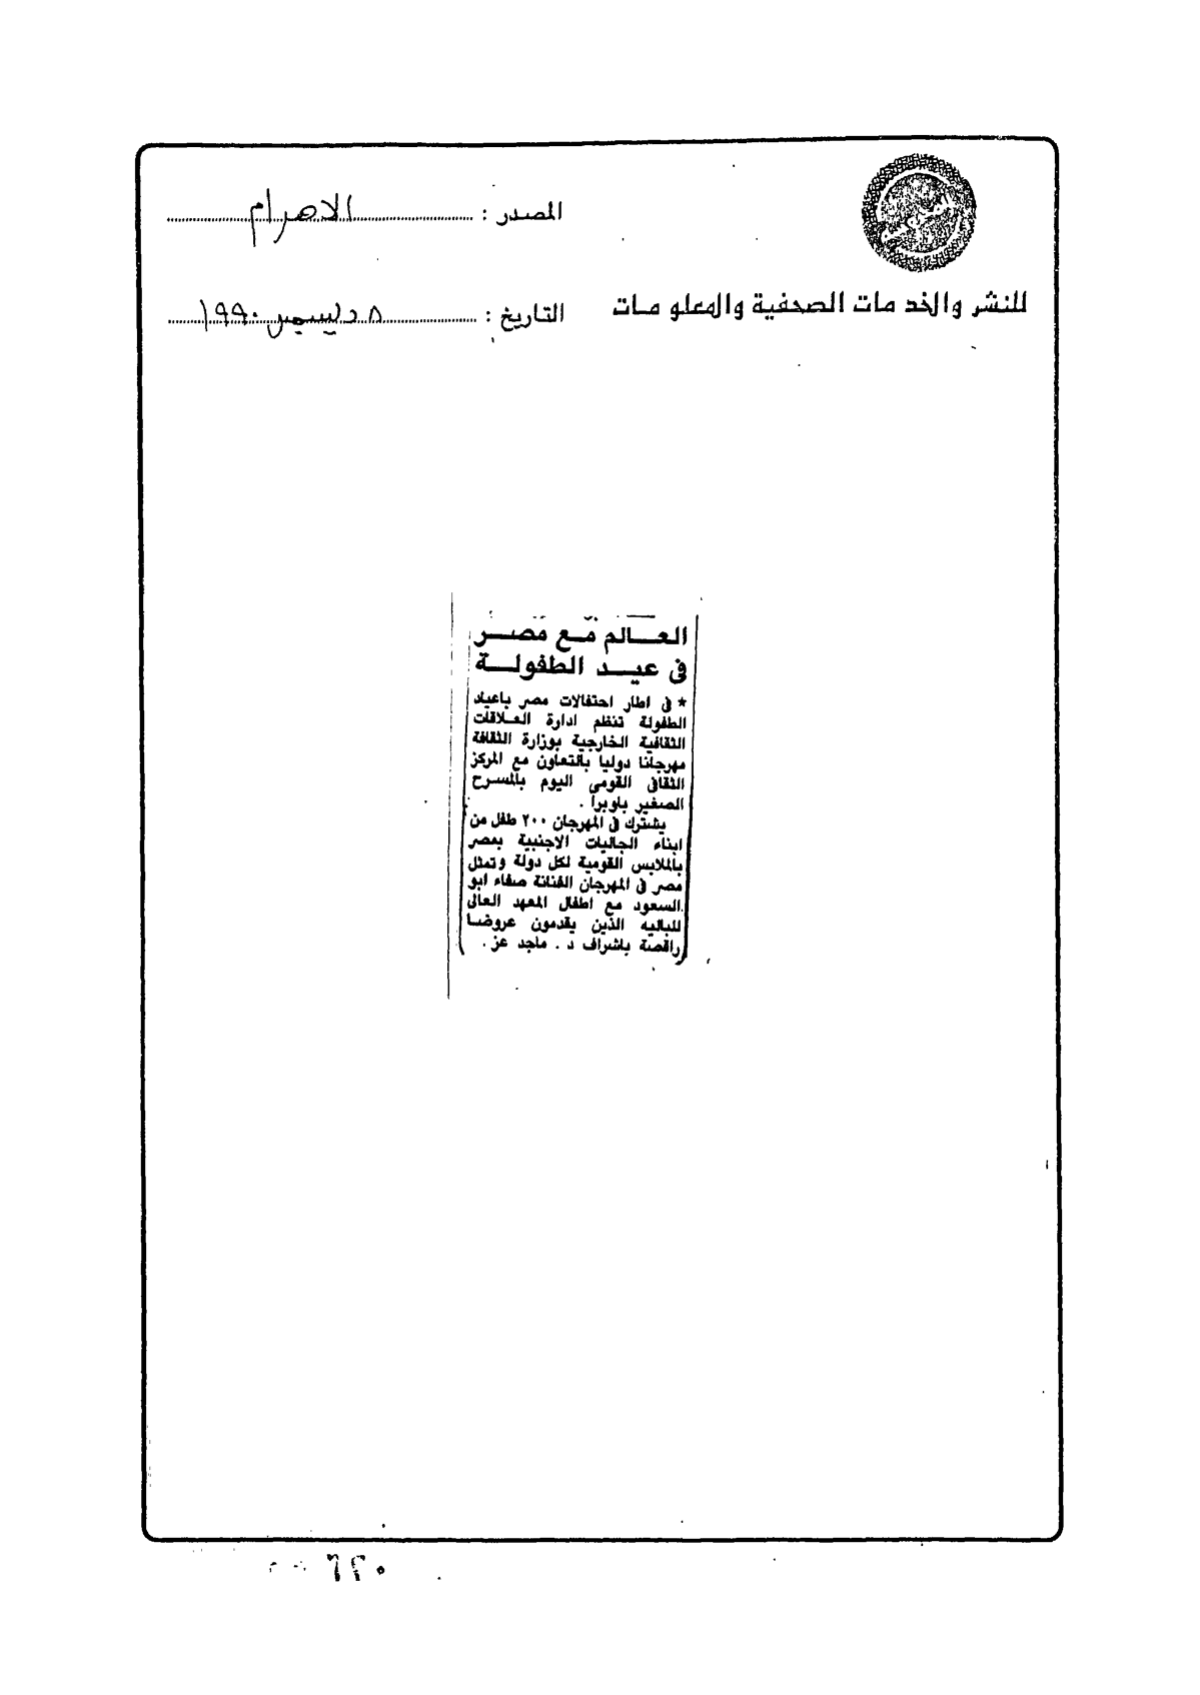 المصدر : الاهرام
للنشر والخدمات الصحفية والمعلومات
التاريخ : ٨ ديسمبر ١٩٩٠
العـــالم مـع مصـــر
فى عيـــد الطفولـــة
* فى اطار احتفالات مصر باعياد
الطفولة تنظم ادارة العلاقات
الثقافية الخارجية بوزارة الثقافة
مهرجانا دوليا بالتعاون مع المركز
الثقافى القومى اليوم بالمسرح
الصغير باوبرا .
يشترك فى المهرجان ٢٠٠ طفل من
ابناء الجاليات الاجنبية بمصر
بالملابس القومية لكل دولة وتمثل
مصر فى المهرجان الفنانة صفاء ابو
السعود مع اطفال المعهد العالى
للباليه الذين يقدمون عروضا
راقصة باشراف د . ماجد عز .